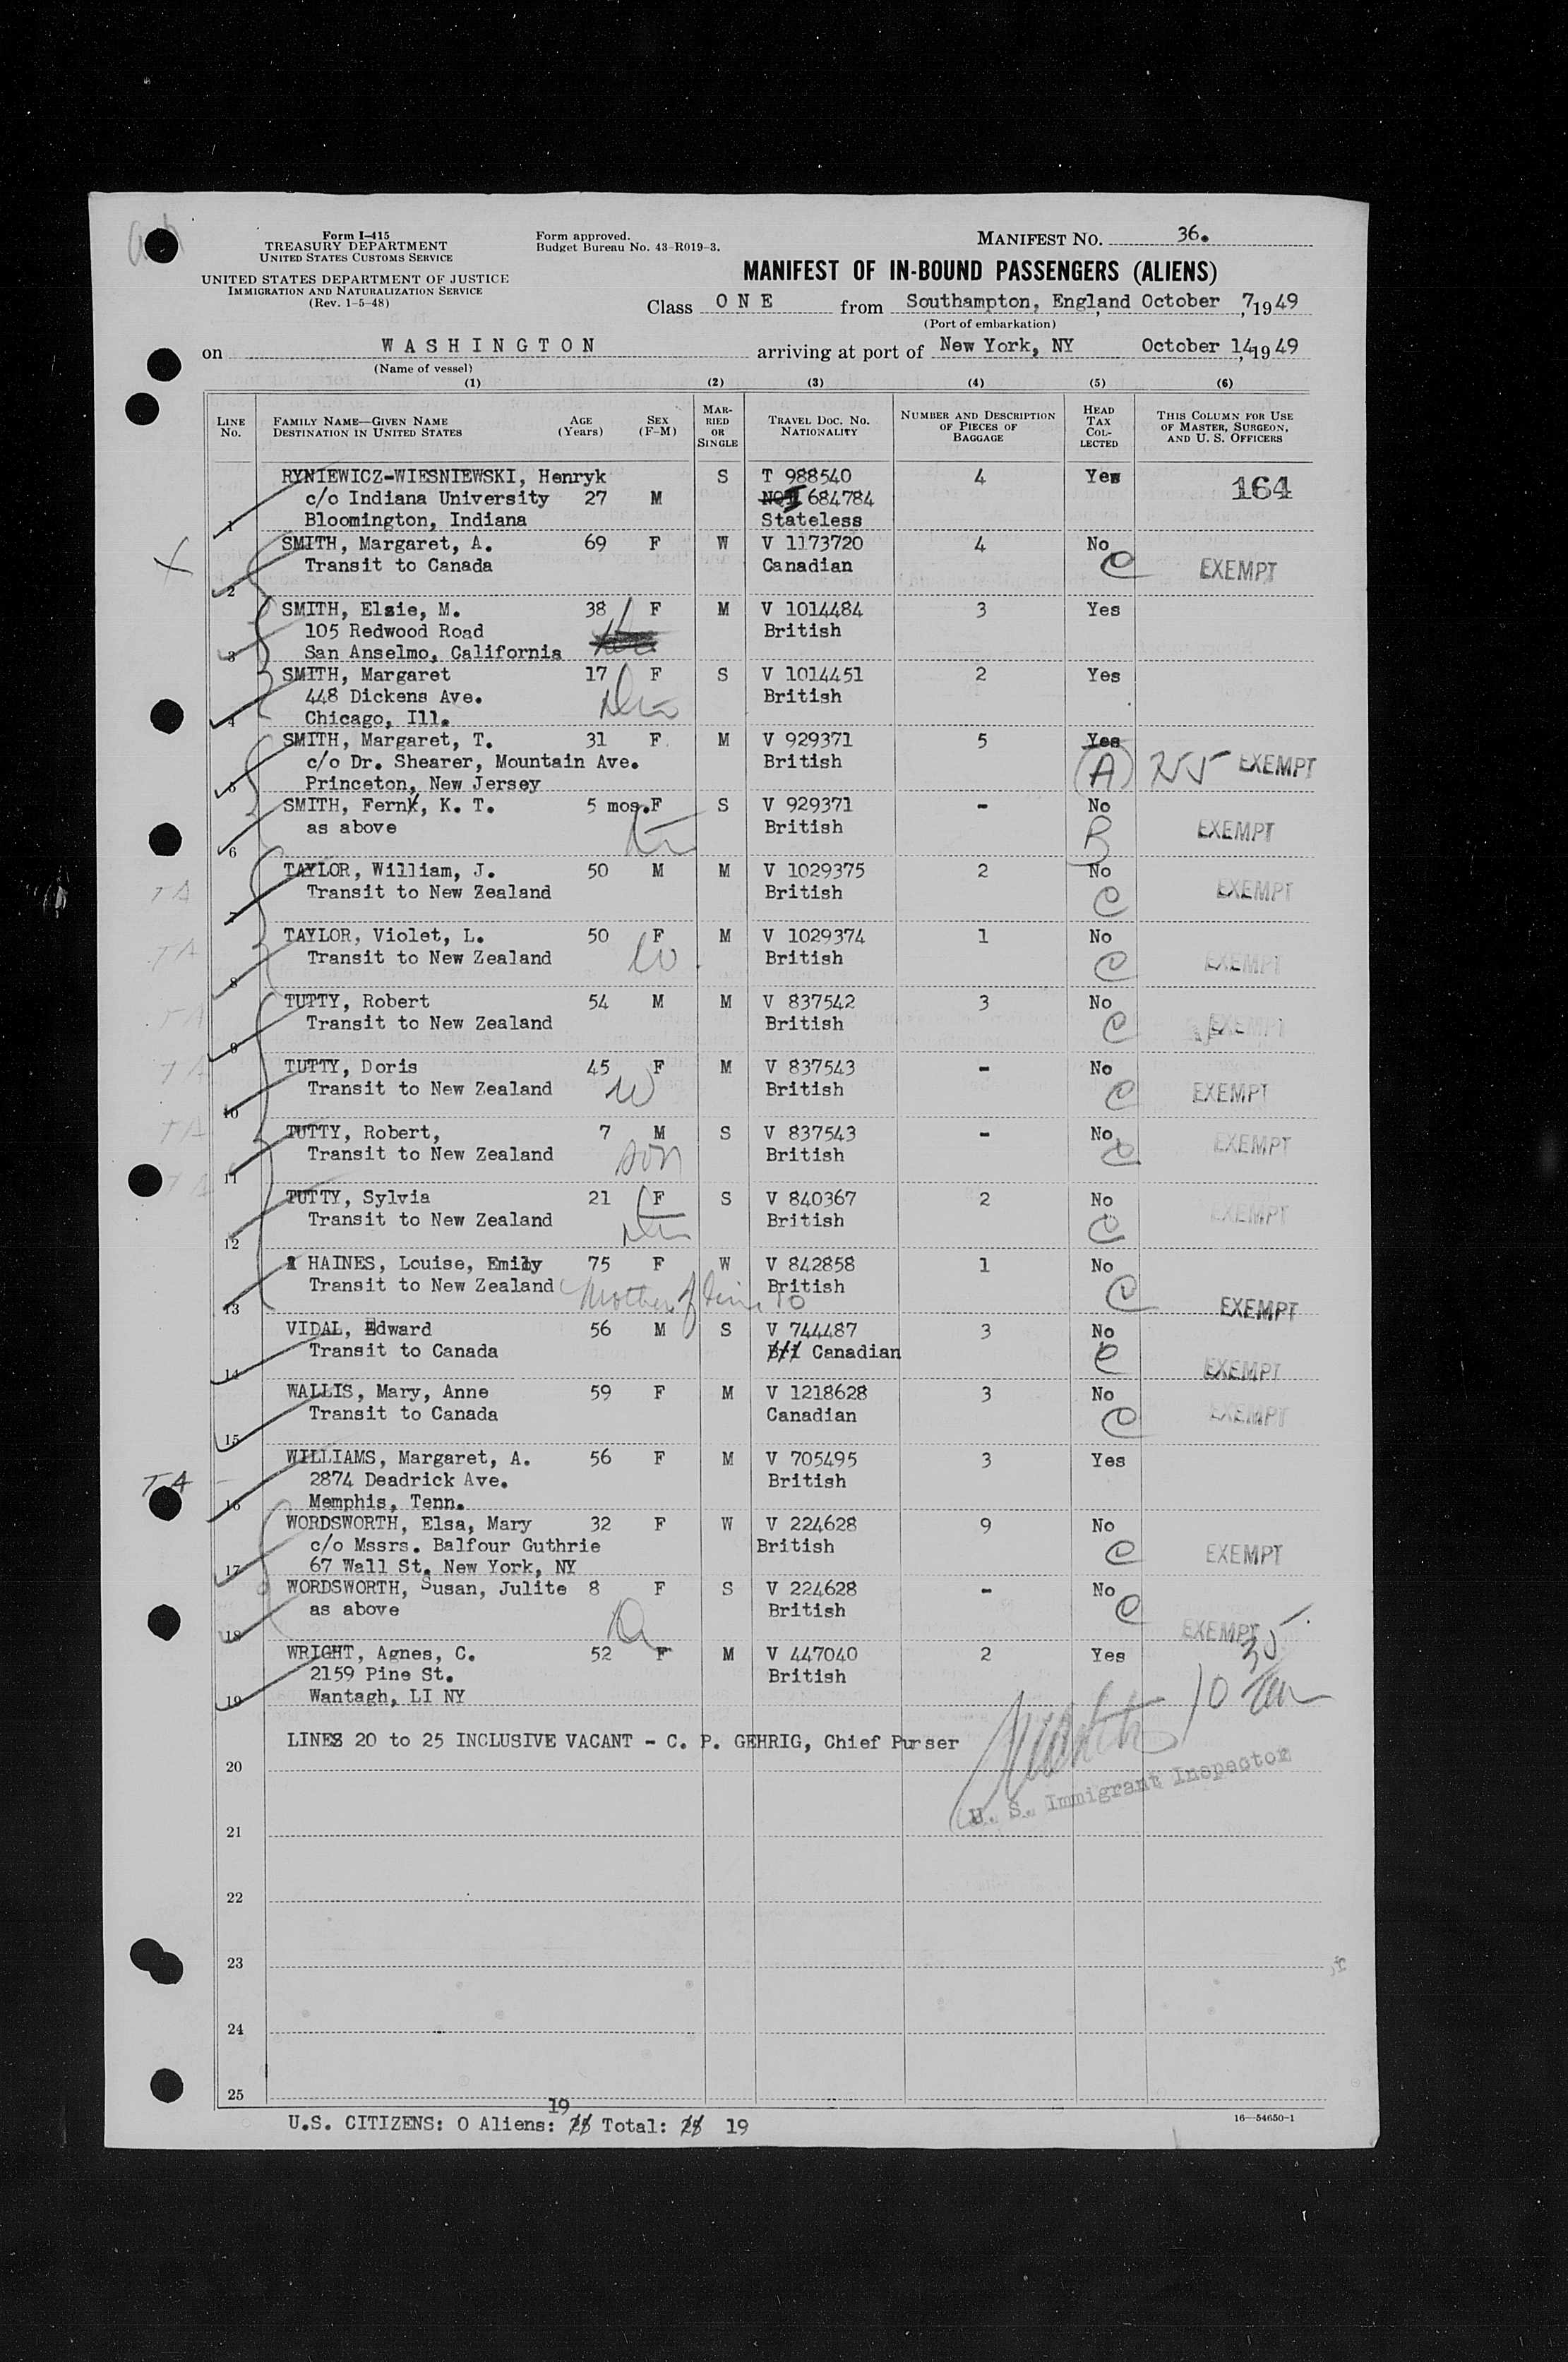 Form I-415
TREASURY DEPARTMENT
UNITED STATES CUSTOMS SERVICE
UNITED STATES DEPARTMENT OF JUSTICE
IMMIGRATION AND NATURALIZATION SERVICE
(Rev. 1-5-48)
Form approved.
Budget Bureau No. 43-R019-3.
MANIFEST NO. 36.
MANIFEST OF IN-BOUND PASSENGERS (ALIENS)
Class O N E from Southampton, England October 7, 1949
(Port of embarkation)
on W A S H I N G T O N arriving at port of New York, NY October 14, 1949
(Name of vessel)
(1) (2) (3) (4) (5) (6)
LINE No. FAMILY NAME—GIVEN NAME DESTINATION IN UNITED STATES AGE (Years) SEX (F-M) MARRIED OR SINGLE TRAVEL DOC. NO. NATIONALITY NUMBER AND DESCRIPTION OF PIECES OF BAGGAGE HEAD TAX COLLECTED THIS COLUMN FOR USE OF MASTER, SURGEON, AND U. S. OFFICERS
RYNIEWICZ-WIESNIEWSKI, Henryk S T 988540 4 Yes 164
c/o Indiana University 27 M I 684784
1 Bloomington, Indiana Stateless
SMITH, Margaret, A. 69 F W V 1173720 4 No
X Transit to Canada Canadian C EXEMPT
2
SMITH, Elsie, M. 38 F M V 1014484 3 Yes
105 Redwood Road British
3 San Anselmo, California
SMITH, Margaret 17 F S V 1014451 2 Yes
448 Dickens Ave. British
4 Chicago, Ill.
SMITH, Margaret, T. 31 F M V 929371 5 Yes
c/o Dr. Shearer, Mountain Ave. British A EXEMPT
5 Princeton, New Jersey
SMITH, Fern, K. T. 5 mos. F S V 929371 - No
as above British B EXEMPT
6
TAYLOR, William, J. 50 M M V 1029375 2 No
TA Transit to New Zealand British C EXEMPT
7
TAYLOR, Violet, L. 50 F M V 1029374 1 No
TA Transit to New Zealand W British C EXEMPT
8
TUTTY, Robert 54 M M V 837542 3 No
TA Transit to New Zealand British C EXEMPT
9
TUTTY, Doris 45 F M V 837543 - No
TA Transit to New Zealand W British C EXEMPT
10
TUTTY, Robert, 7 M S V 837543 - No
TA Transit to New Zealand son British C EXEMPT
11
TA
TUTTY, Sylvia 21 F S V 840367 2 No
Transit to New Zealand British C EXEMPT
12
HAINES, Louise, Emily 75 F W V 842858 1 No
Transit to New Zealand Mother of line 10 British C EXEMPT
13
VIDAL, Edward 56 M S V 744487 3 No
Transit to Canada Bri Canadian C EXEMPT
14
WALLIS, Mary, Anne 59 F M V 1218628 3 No
Transit to Canada Canadian C EXEMPT
15
WILLIAMS, Margaret, A. 56 F M V 705495 3 Yes
TA 2874 Deadrick Ave. British
16 Memphis, Tenn.
WORDSWORTH, Elsa, Mary 32 F W V 224628 9 No
c/o Mssrs. Balfour Guthrie British C EXEMPT
17 67 Wall St. New York, NY
WORDSWORTH, Susan, Julite 8 F S V 224628 - No
as above British C EXEMPT
18
WRIGHT, Agnes, C. 52 F M V 447040 2 Yes
2159 Pine St. British
19 Wantagh, LI NY
LINES 20 to 25 INCLUSIVE VACANT - C. P. GEHRIG, Chief Purser
20
U. S. Immigrant Inspector
21
22
23
24
25
19
U.S. CITIZENS: 0 Aliens: Total: 19
16—54650-1